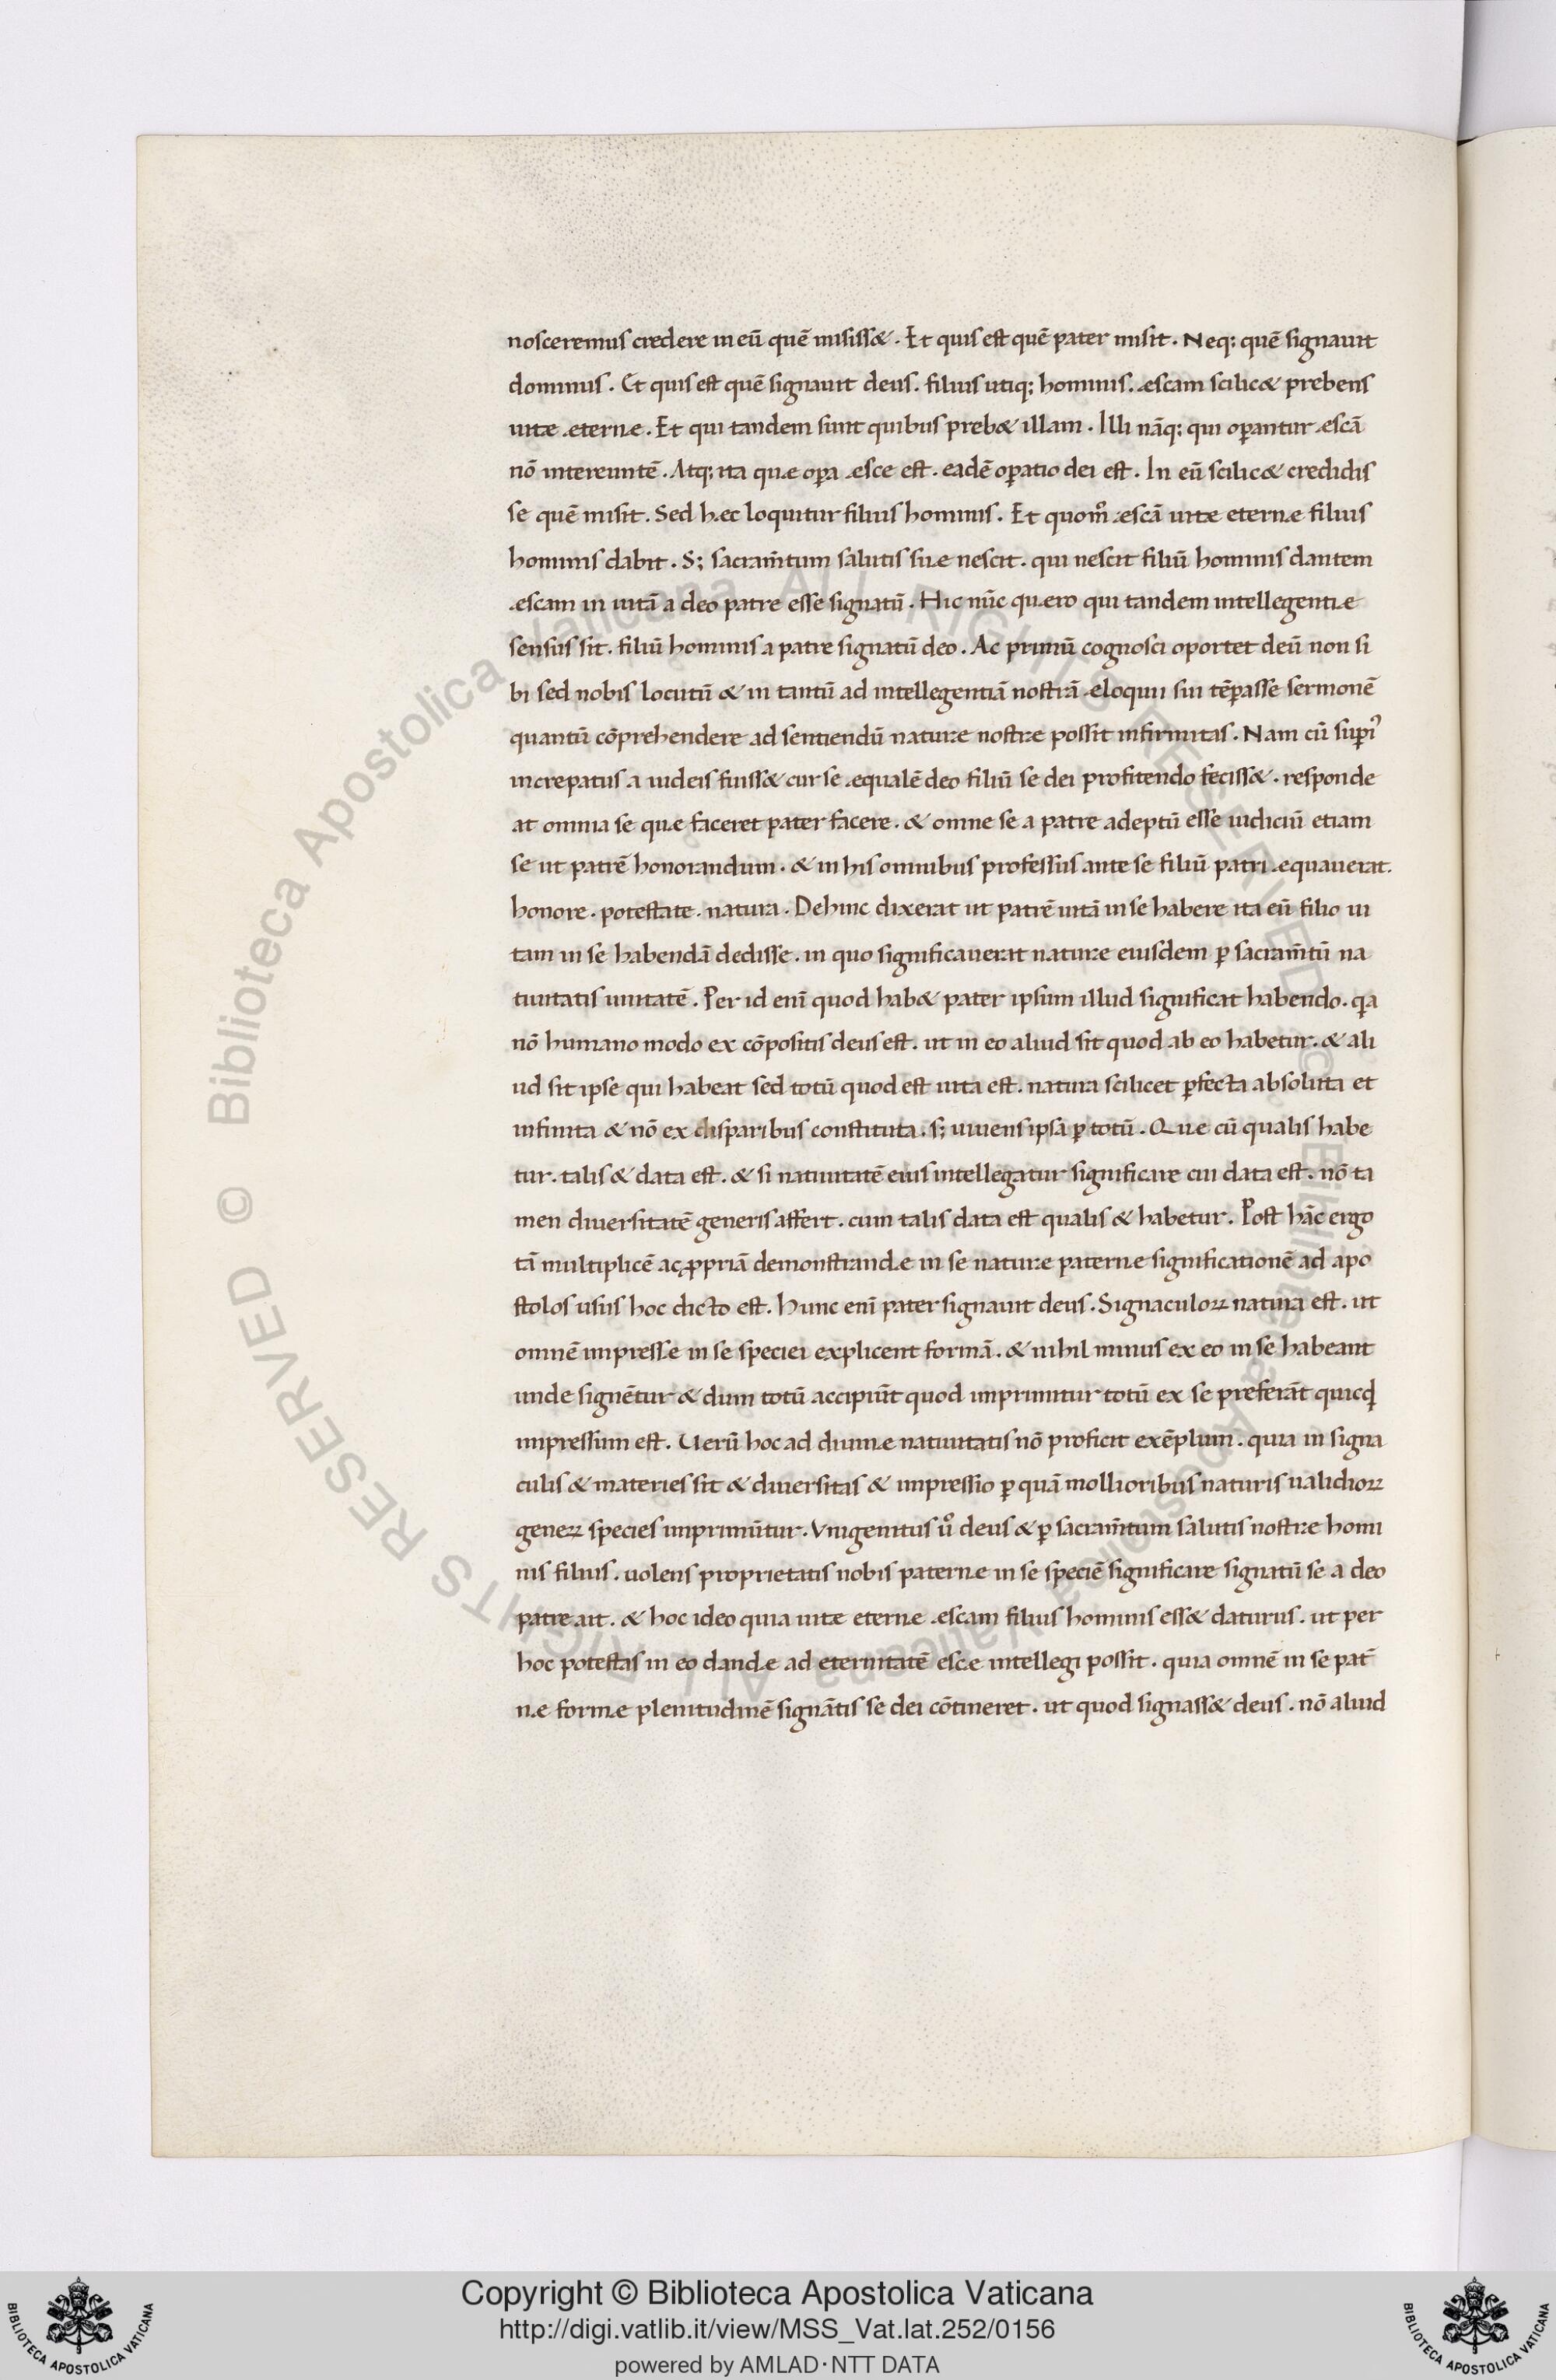 nosceremus credere in eū quē misiss&. Et quis est quē pater misit. Neq; quē signauit
dominus. Et quis est quē signauit deus. filius utiq; hominis. æscam scilic& prebens
uitæ æternæ. Et qui tandem sunt quibus preb& illam. Illi nāq; qui oꝑantur æscā
nō intereuntē. Atq; ita quæ oꝑa æsce est. eadē oꝑatio dei est. In eū scilic& credidis
se quē misit. Sed hæc loquitur filius hominis. Et quom̊ æscā uitæ eternæ filius
hominis dabit. S; sacram̄tum salutis suæ nescit. qui nescit filiū hominis dantem
æscam in uitā a deo patre esse signatū. Hic nūc quæro qui tandem intellegentiæ
sensus sit. filiū hominis a patre signatū deo. Ac primū cognosci oportet deū non si
bi sed nobis locutū & in tantū ad intellegentiā nostrā æloquii sui tēꝑasse sermonē
quantū cōprehendere ad sentiendū naturæ nostræ possit infirmitas. Nam cū suꝑi᾽
increpatus a iudeis fuiss& cur se æqualē deo filiū se dei profitendo feciss&. responde
at omnia se quæ faceret pater facere. & omne se a patre adeptū esse iudiciū etiam
se ut patrē honorandum. & in his omnibus professus ante se filiū patri æquauerat.
honore. potestate. natura. Dehinc dixerat ut patrē uitā in se habere ita eū filio ui
tam in se habendā dedisse. in quo significauerat naturæ eiusdem ꝑ sacram̄tū na
tiuitatis unitatē. Per id enī quod hab& pater ipsum illud significat habendo. qa
nō humano modo ex cōpositis deus est. ut in eo aliud sit quod ab eo habetur. & ali
ud sit ipse qui habeat sed totū quod est uita est. natura scilicet ꝑfecta absoluta et
infinita & nō ex disparibus constituta. s; uiuens ipsā ꝑ totū. Quæ cū qualis habe
tur. talis & data est. & si natiuitatē eius intellegatur significare cui data est. nō ta
men diuersitatē generis affert. cum talis data est qualis & habetur. Post hāc ergo
tā multiplicē ac ꝓpriā demonstrandæ in se naturæ paternæ significationē ad apo
stolos usus hoc dicto est. Hunc enī pater signauit deus. Signaculoꝝ natura est. ut
omnē impressæ in se speciei explicent formā. & nihil minus ex eo in se habeant
unde signētur & dum totū accipiūt quod imprimitur totū ex se preferāt quicq̄
impressum est. Uerū hoc ad diuinæ natiuitatis nō proficit exēplum. quia in signa
culis & materies sit & diuersitas & impressio ꝑ quā mollioribus naturis ualidioꝝ
geneꝝ species imprimūtur. Vnigenitus ů deus & ꝑ sacram̄tum salutis nostræ homi
nis filius. uolens proprietatis nobis paternæ in se speciē significare signatū se a deo
patre ait. & hoc ideo quia uitæ eternæ æscam filius hominis ess& daturus. ut per
hoc potestas in eo dandæ ad eternitatē escæ intellegi possit. quia omnē in se pat̄
næ formæ plenitudinē signātis se dei cōtineret. ut quod signass& deus. nō aliud
© Biblioteca Apostolica Vaticana ALL RIGHTS RESERVED © Biblioteca Apostolica Vaticana ALL RIGHTS RESERVED
Copyright © Biblioteca Apostolica Vaticana
http://digi.vatlib.it/view/MSS_Vat.lat.252/0156
powered by AMLAD·NTT DATA
BIBLIOTECA APOSTOLICA VATICANA
BIBLIOTECA APOSTOLICA VATICANA